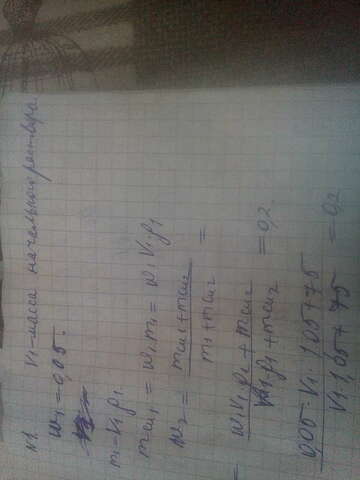 N1. V₁-масса начального раствора
W₁ = 0,05.
m₁ = V₁·ρ₁.
mсщ₁ = w₁m₁ = w₁V₁·ρ₁
w₂ = (mсщ₁ + mсщ₂) / (m₁ + mсщ₂) =
= (w₁V₁ρ₁ + mсщ₂) / (V₁·ρ₁ + mсщ₂) = 0,2
(0,05·V₁·1,05 + 75) / (V₁·1,05 + 75) = 0,2